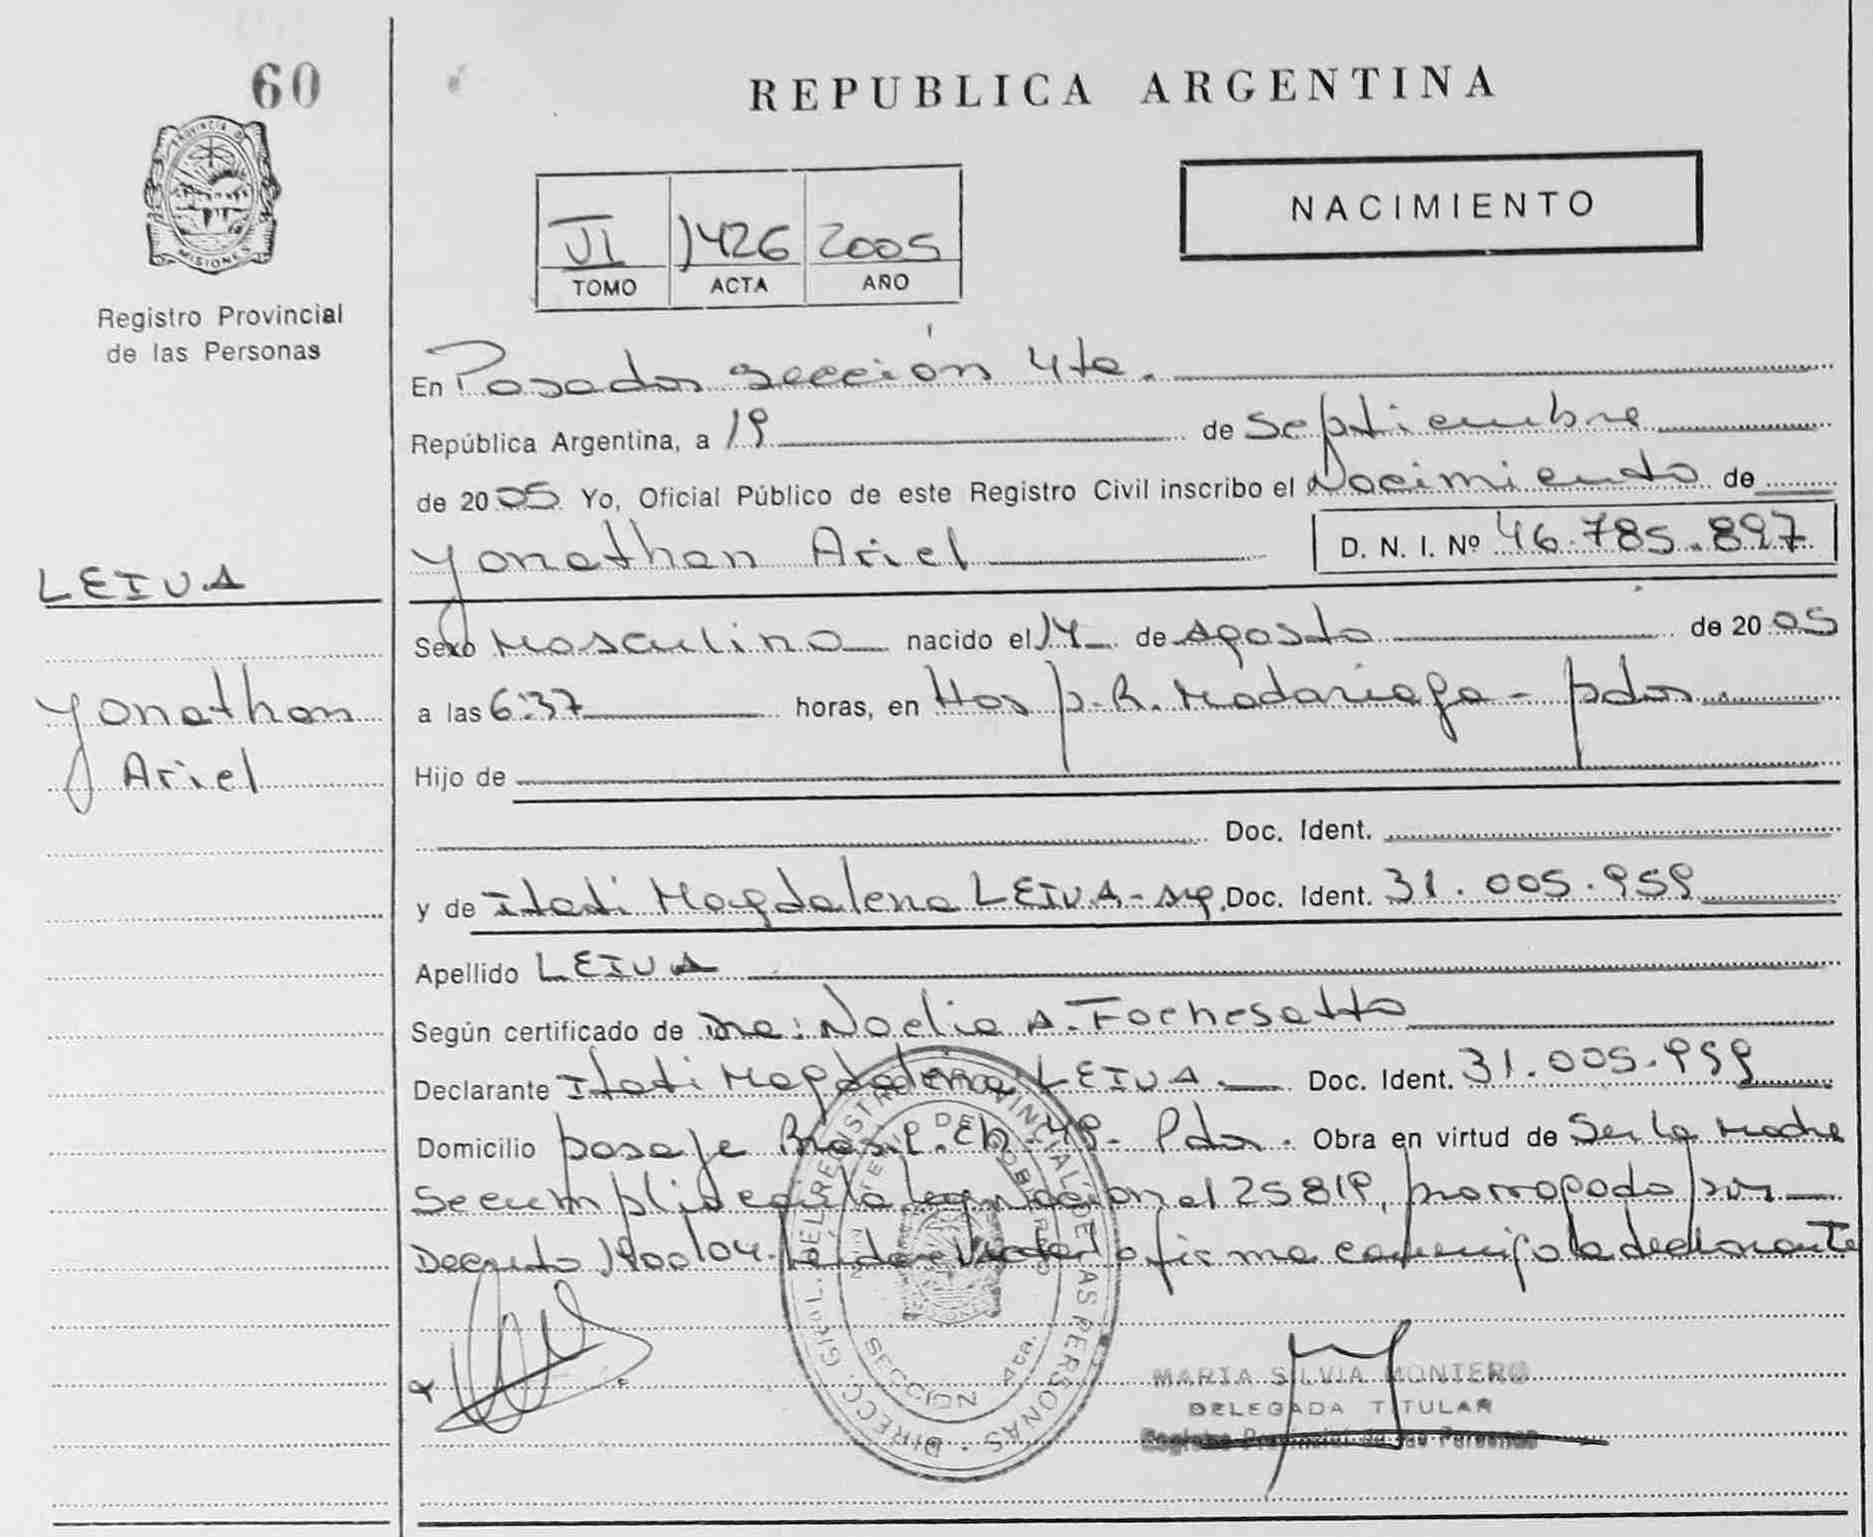 60
REPUBLICA ARGENTINA
PROVINCIA DE
MISIONES
Registro Provincial
de las Personas
NACIMIENTO
VI 1426 2005
TOMO ACTA AÑO
En Posadas sección 4ta.
República Argentina, a 19 de septiembre
de 2005 Yo, Oficial Público de este Registro Civil inscribo el Nacimiento de
Yonathan Ariel D. N. I. Nº 46.785.897
LEIVA
Sexo Masculino nacido el 14 de Agosto de 2005
Yonathan
Ariel
a las 6:37 horas, en Hos p.R. Madariaga - pdas
Hijo de
Doc. Ident.
y de Itati Magdalena LEIVA - Arg. Doc. Ident. 31.005.959
Apellido LEIVA
Según certificado de Dra: Noelia A. Fochesatto
Declarante Itati Magdalena LEIVA Doc. Ident. 31.005.959
Domicilio pasaje Brasil. Ch. 49 - Pdas. Obra en virtud de Ser la Madre
Se cumplió con la ley Nacional 25819, prorrogado por
Decreto 1900/04. Leída el Acta firma conmigo la declarante
DIRECC. GRAL. DEL REGISTRO PROVINCIAL DE LAS PERSONAS
SECCION 4ta.
MARTA SILVIA MONTERO
DELEGADA TITULAR
Registro Provincial de las Personas